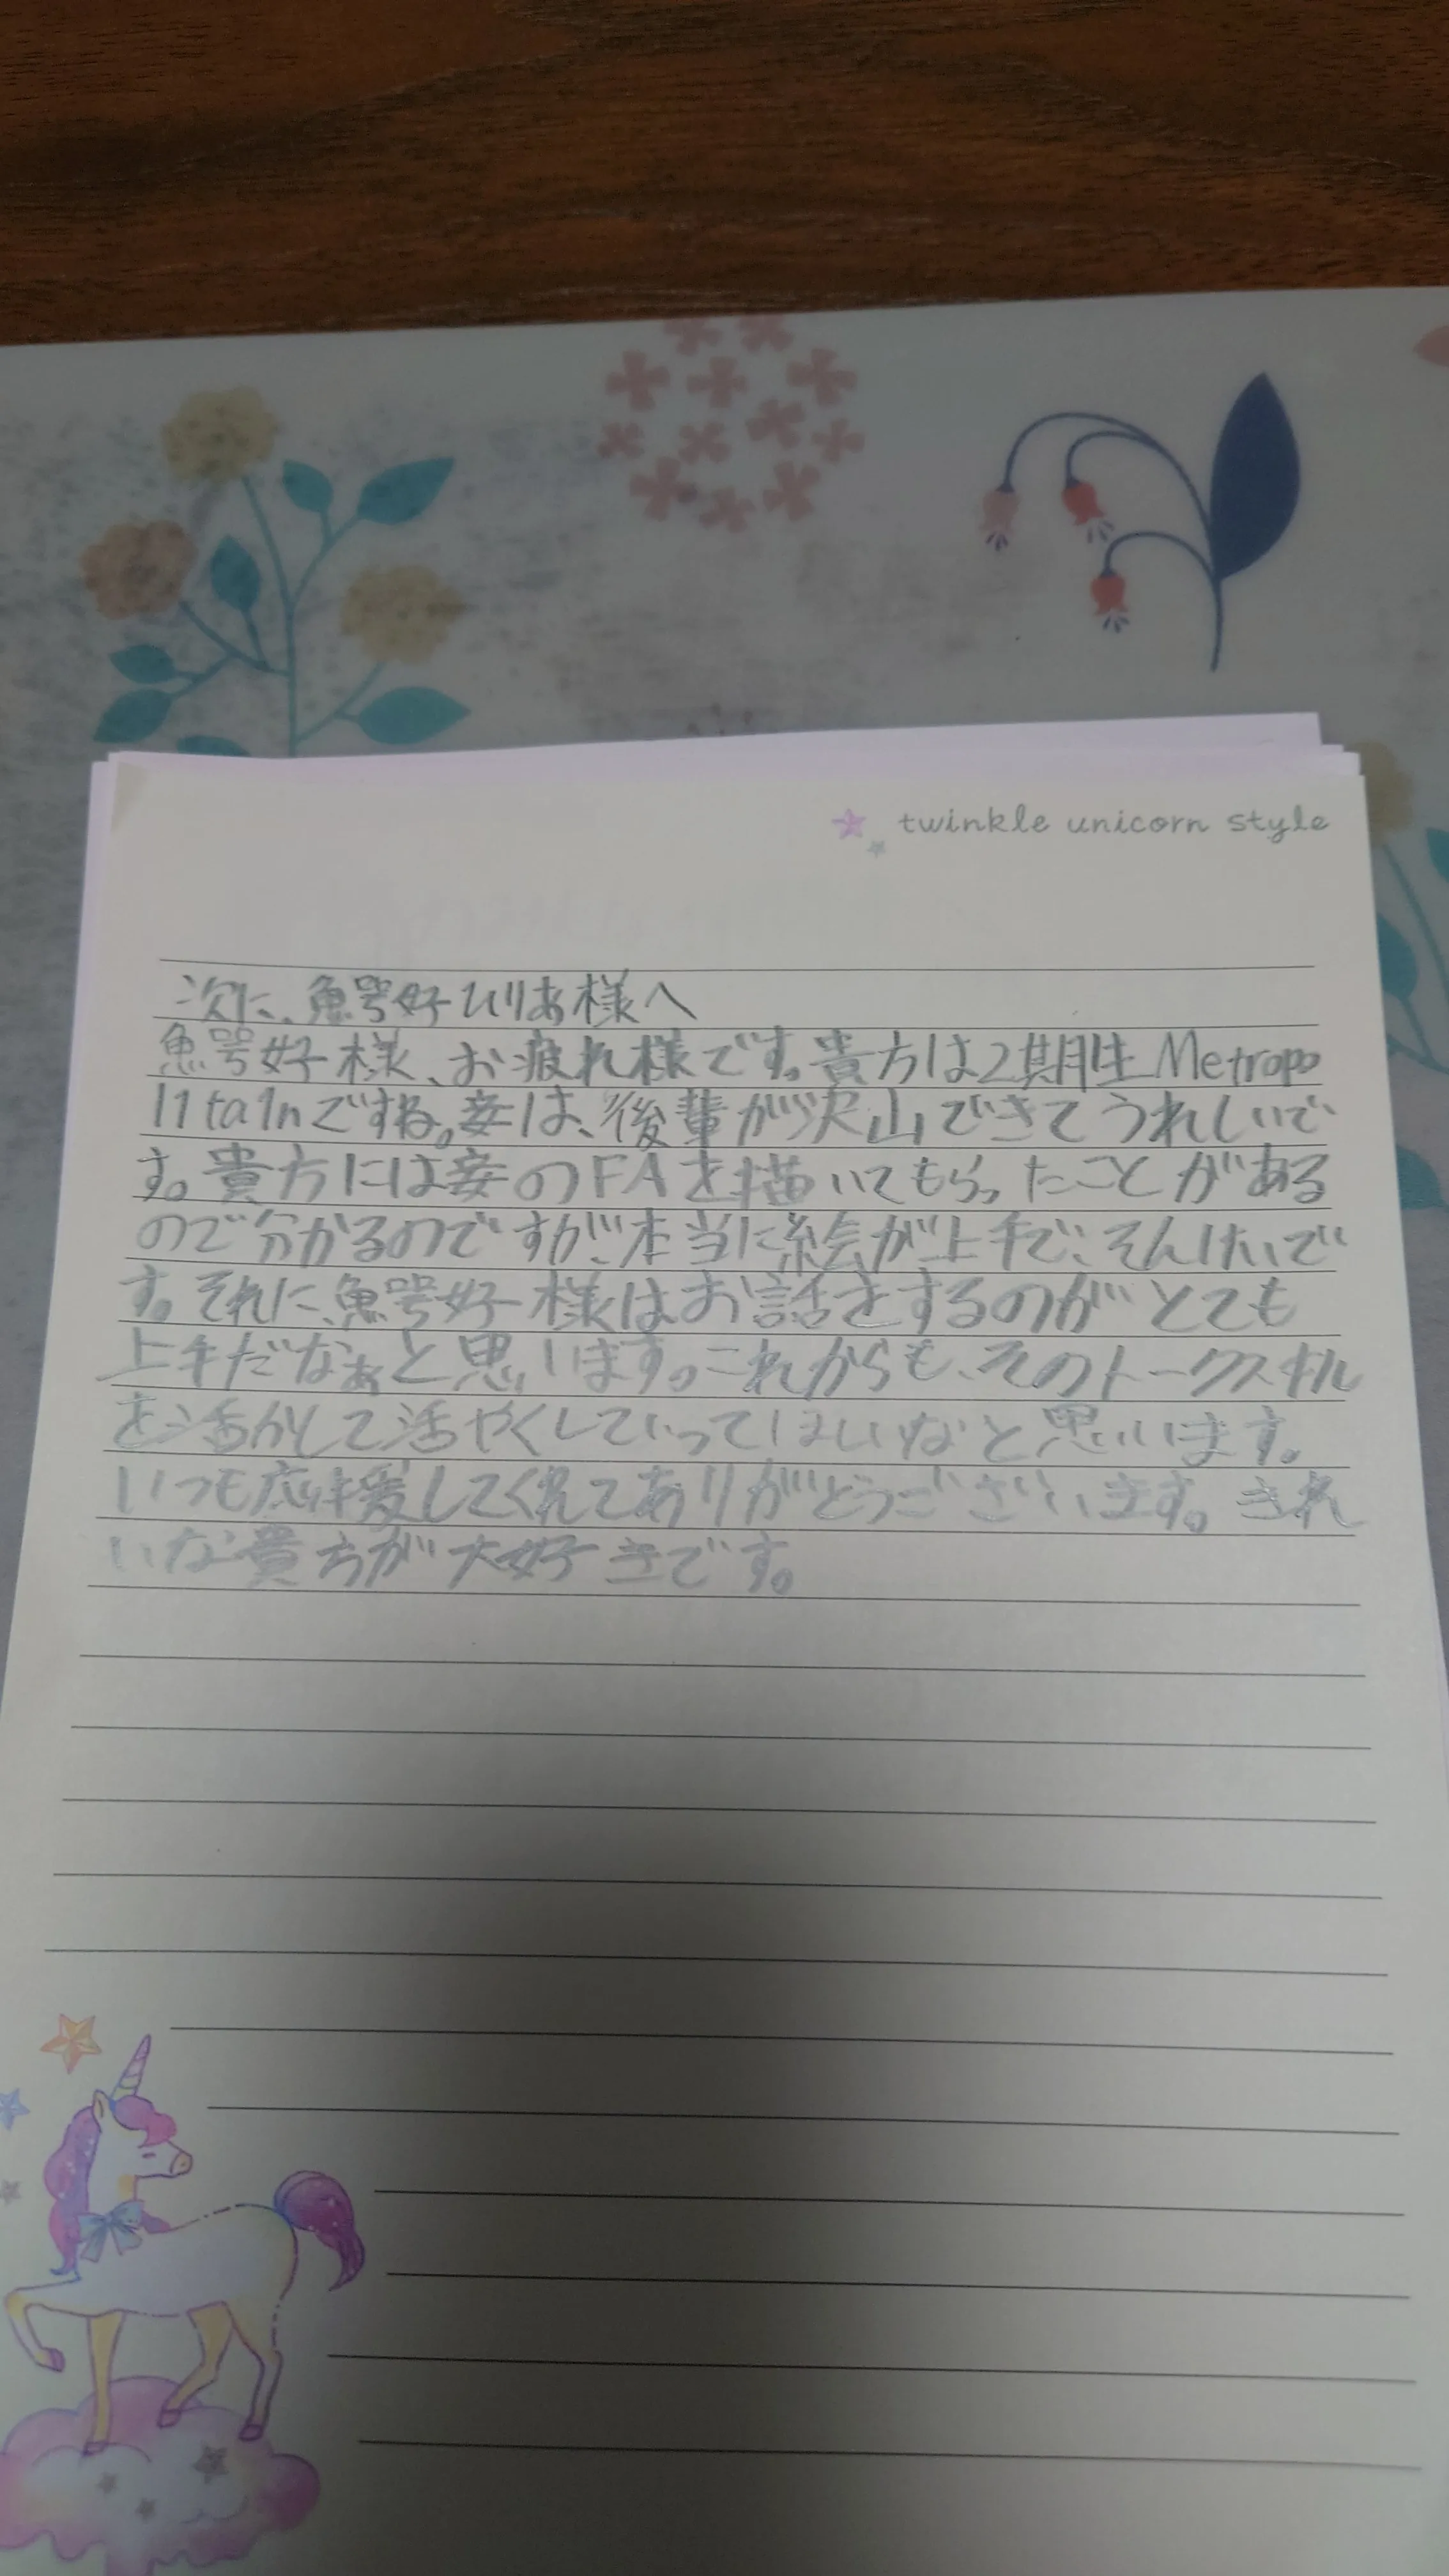 twinkle unicorn style
次に、魚咢好ひりあ様へ
魚咢好様、お疲れ様です。貴方は2期生Metropo
litainですね。妾は、後輩が沢山できてうれしいで
す。貴方には妾のFAを描いてもらったことがある
ので分かるのですが、本当に絵が上手で、そんけいで
す。それに、魚咢好様はお話をするのがとても
上手だなぁと思います。これからも、そのトークスキル
を活かして活やくしていってほしいなと思います。
いつも応援してくれてありがとうございます。きれ
いな貴方が大好きです。